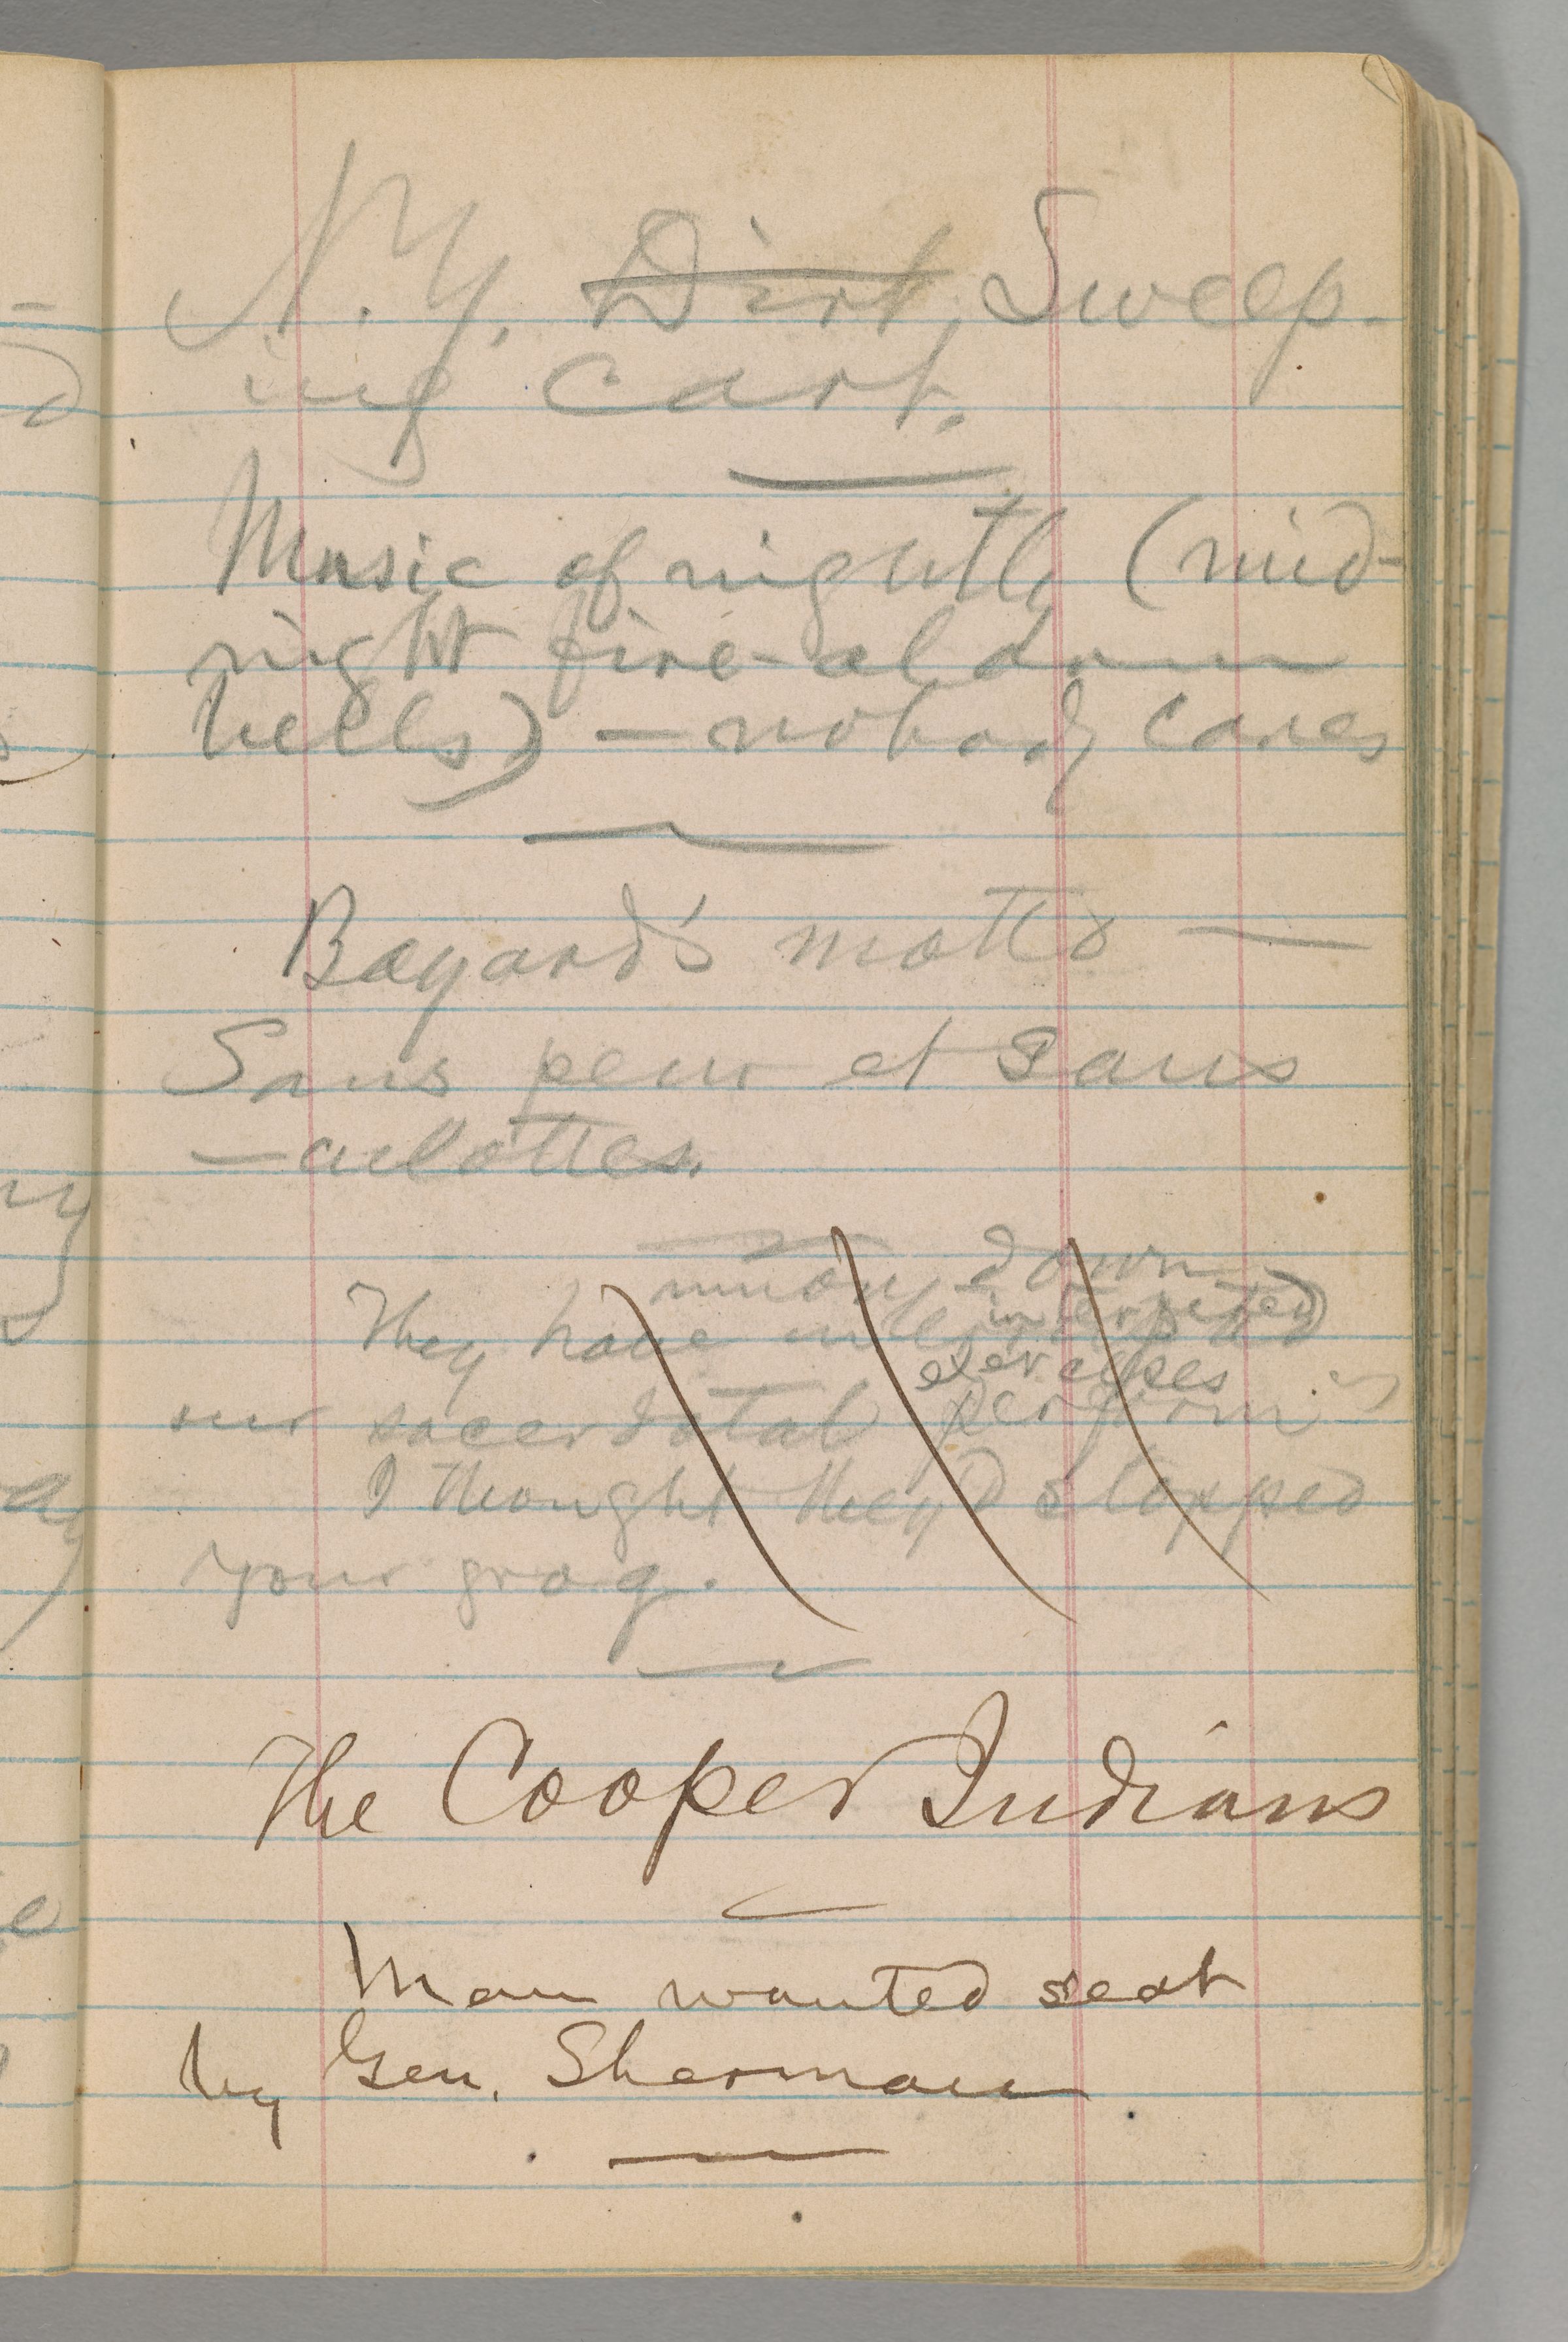 N.Y. Dirt, Sweep-
ing cart.
Music of nightly (mid-
night fire-alarum
bells) — nobody cares
Bayard's motto —
Sans peur et sans
—culottes.
union down
They have inter interdicted
exercises
our sacerdotal perform
I thought they'd stopped
your grog.
The Cooper Indians
Man wanted seat
by Gen. Sherman